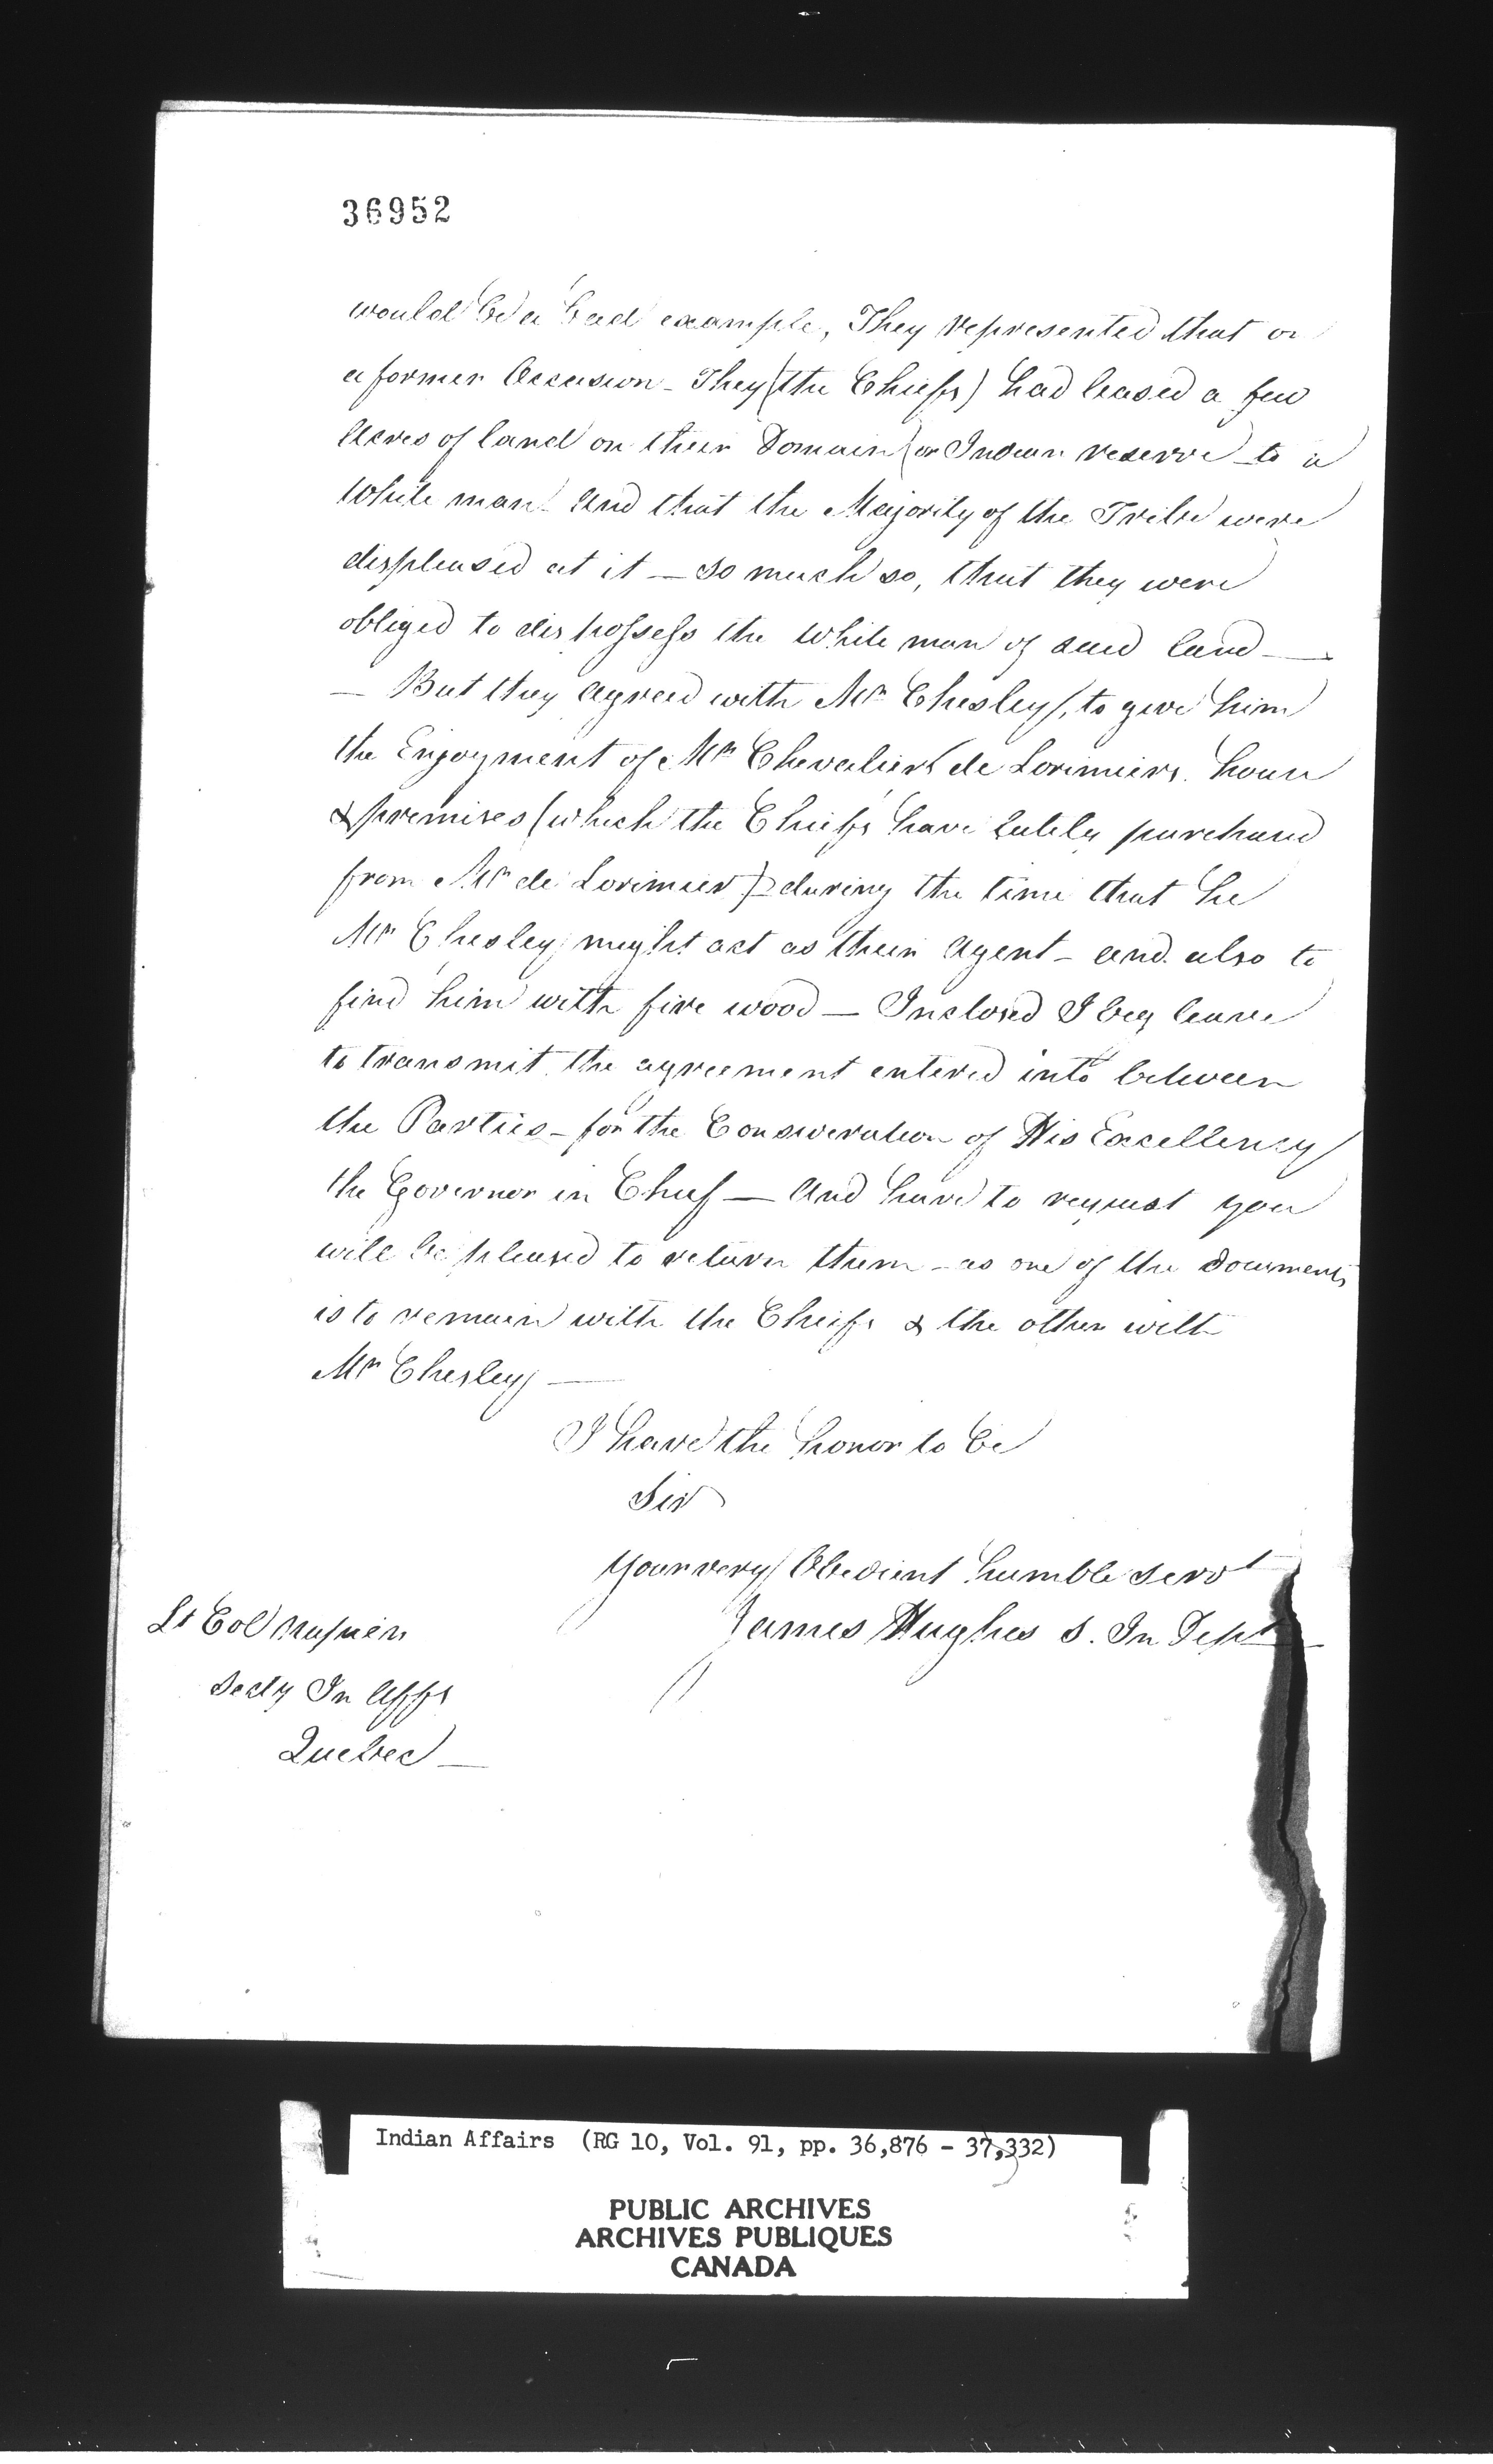 36952
would be a bad example, They represented that on
a former Occasion - They (the Chiefs) had leased a few
Acres of land on their Domain (or Indian reserve to a
White man - And that the Majority of the Tribe were
displeased at it — so much so, that they were
obliged to dispossess the White man of said land —
— But they agreed with Mr Chesley, to give him
the Enjoyment of Mr Chevalier de Lorimiers house
& premises (which the Chiefs have lately purchased
from Mr de Lorimier) - during the time that he
Mr Chesley might act as their Agent - and also to
find him with fire wood — Inclosed I beg leave
to transmit the agreement entered into between
the Parties - for the Consideration of His Excellency
the Governor in Chief — And have to request you
will be pleased to return them - as one of the documents
is to remain with the Chiefs & the other with
Mr Chesley —
I have the honor to be
Sir
Your very Obedient humble servt
James Hughes S. In Dept
Lt Col Napier
Secty In Affrs
Quebec —
Indian Affairs (RG 10, Vol. 91, pp. 36,876 - 37,332)
PUBLIC ARCHIVES
ARCHIVES PUBLIQUES
CANADA